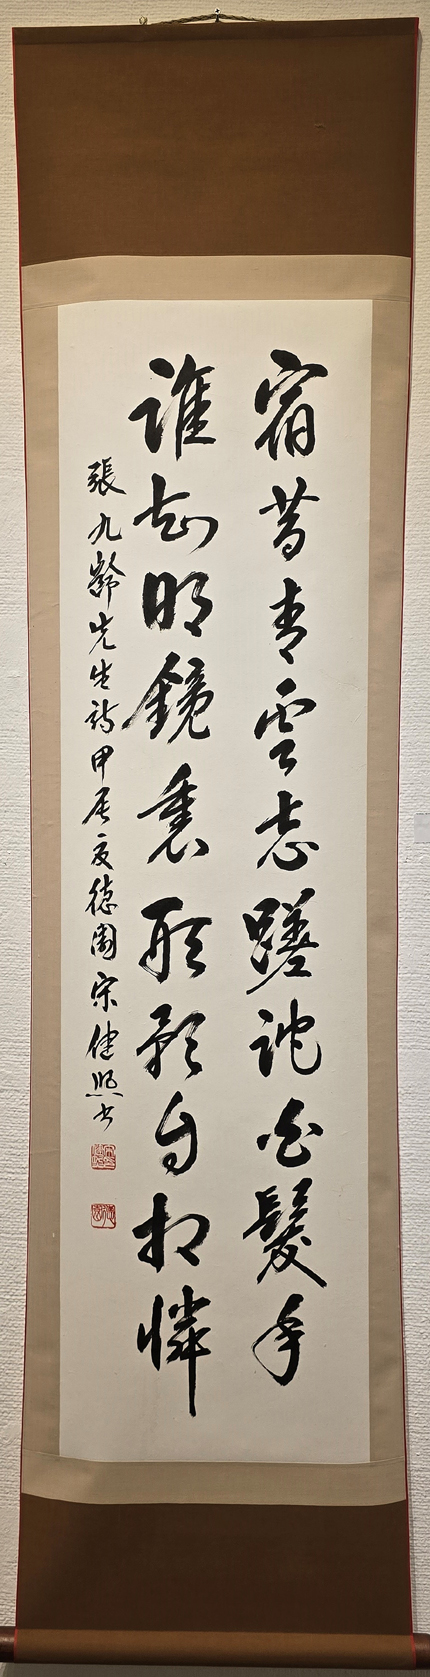 宿昔青雲志蹉跎白髮年
誰知明鏡裏形影自相憐
張九齡先生詩甲辰夏德園宋健熙書